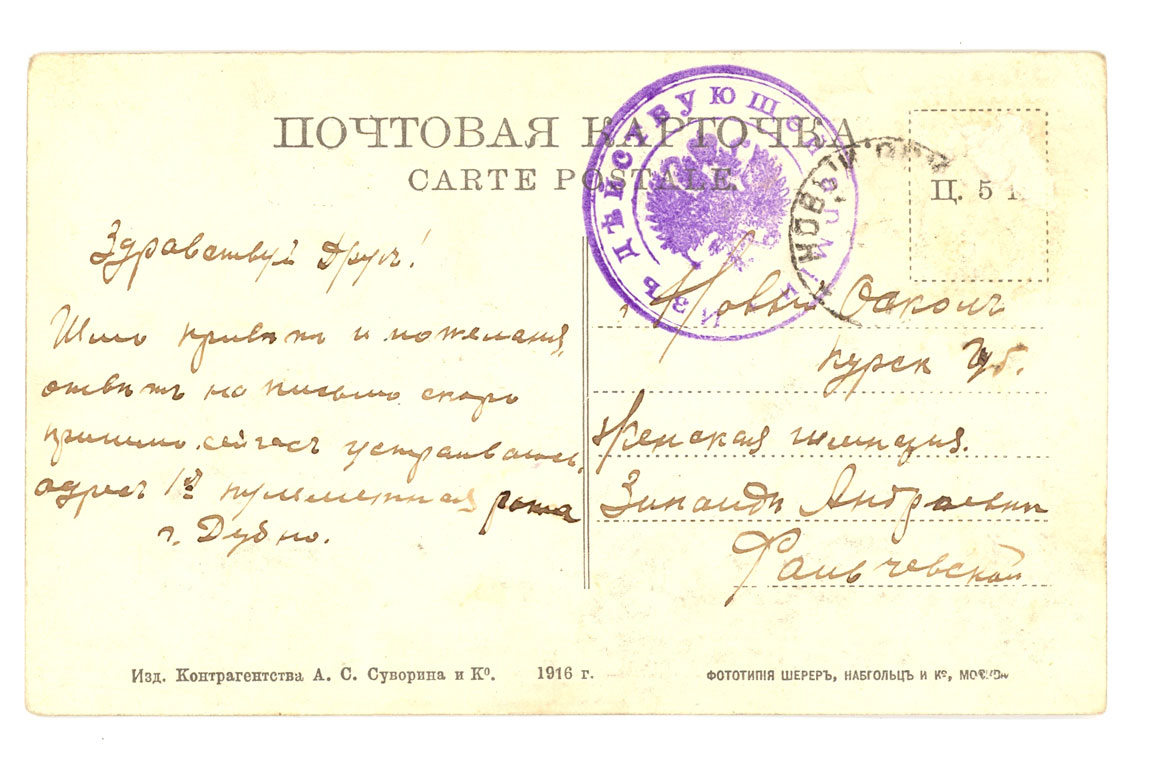 ПОЧТОВАЯ КАРТОЧКА.
CARTE POSTALE.
Изъ Дѣйствующей Арміи
Ц. 5
Здравствуй Другъ!
Шлю привѣтъ и пожеланія,
отвѣтъ на письмо скоро
пришлю. сейчасъ устраиваюсь,
адресъ 1я пулеметная рота
г. Дубно.
г. Новый Осколъ
Курск Губ.
Женская гимназія.
Зинаиде Андреевне
Изд. Контрагентства А. С. Суворина и Ко. 1916 г.
ФОТОТИПІЯ ШЕРЕРЪ, НАБГОЛЬЦЪ И Ко, МОСКВА